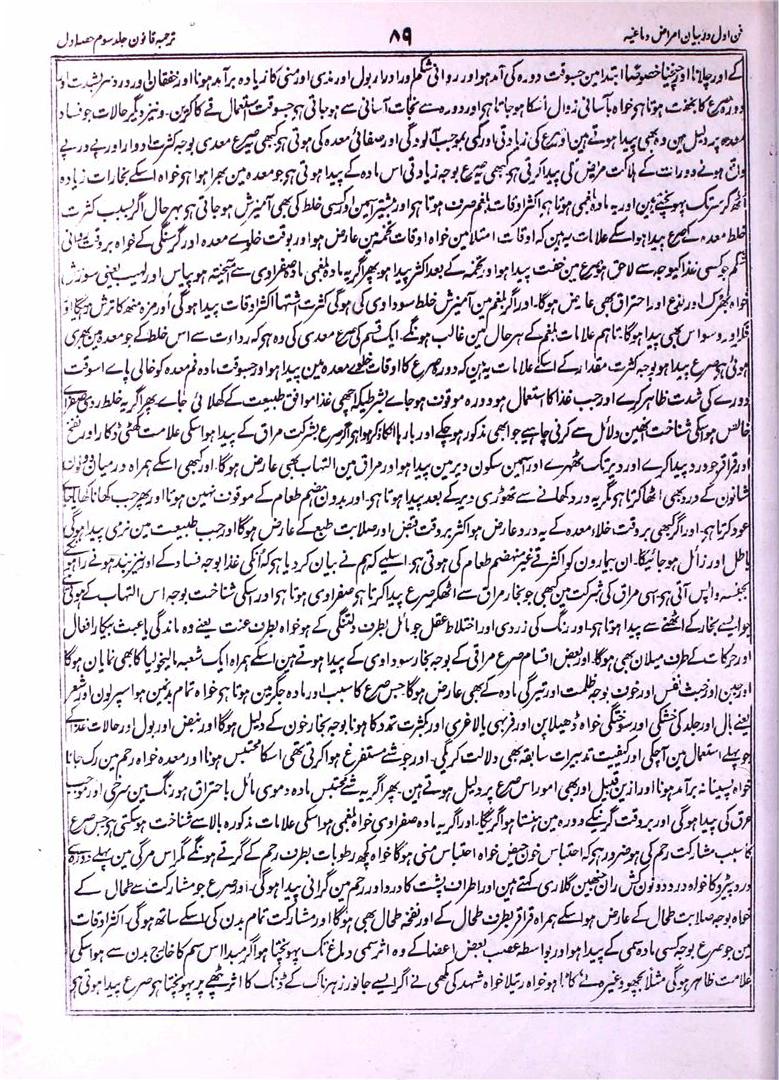 فن اول در بیان امراض دماغیہ ۸۹ ترجمہ قانون جلد سوم حصہ اول
کے اور چلانا اور چیخنا خصوصاً ابتدا مین جسوقت دورہ کی آمد ہو اور روانی شکم اور ادرار بول اور مذی اور منی کا زیادہ برآمد ہونا اور خفقان اور درد سر شدت
دورہ صرع کا بخفت ہوتا ہی خواہ بآسانی زوال اُسکا ہو جاتا ہی اور دورہ سے نجات آسانی سے ہو جاتی ہی جسوقت استعمال قے کا کرین۔ ونیز دیگر حالات جو فساد
معدہ پر دلیل ہین وہ بھی پیدا ہوتے ہین اور صرع کی زیادتی اور کمی بموجب آلودگی اور صفائی معدہ کی ہوتی ہی کبھی صرع معدی بوجہ کثرت ادوار اور پے در پے
واقع ہونے دورات کے ہلاکت مریض کی پیدا کرتی ہی کبھی صرع بوجہ زیادتی اس مادہ کے پیدا ہوتی ہی جو معدہ مین بھرا ہوا ہی خواہ اسکے بخارات زیادہ
اُٹھ کر سر تک پہونچتے ہین اور یہ مادہ بلغمی ہوتا ہی اکثر اوقات بلغم صرف ہوتا ہی اور بیشتر اسمین اور کسی خلط کی بھی آمیزش ہو جاتی ہی بہر حال اگر بسبب کثرت
خلط معدہ کے صرع پیدا ہو اسکے علامات یہ ہین کہ اوقات امتلا مین خواہ اوقات تخمہ مین عارض ہو اور بوقت خلوے معدہ اور گرسنگی کے خواہ بروقت روانی
شکم جو کسی غذا کیوجہ سے لاحق ہو صرع مین خفت پیدا ہو اور تخمہ کے بعد اکثر پیدا ہو پھر اگر یہ مادہ بلغمی مادہ صفراوی سے آمیختہ ہو پیاس اور لہیب یعنی سوزش
خواہ بھڑک اور لذع اور احتراق بھی عارض ہوگا۔ اور اگر بلغم مین آمیزش خلط سوداوی کی ہوگی کثرت اشتہا اکثر اوقات پیدا ہوگی اور مزہ منھ کا ترش رہیگا اور
فکر اور وسواس بھی پیدا ہوگا۔ تاہم علامات بلغم کے ہر حال مین غالب ہونگے۔ ایک قسم کی صرع معدی کی وہ ہی کہ رداءت سے اس خلط کے جو معدہ مین بھری
ہوئی ہی صرع پیدا ہو نہ بوجہ کثرت مقدار کے اسکے علامات یہ ہین کہ دورہ صرع کا اوقات خلوے معدہ مین پیدا ہو اور جسوقت مادہ فم معدہ کو خالی پاے اسوقت
دورے کی شدت ظاہر کرے اور جب غذا کا استعمال ہو دورہ موقوف ہو جاے بشرطیکہ اچھی غذا موافق طبیعت کے کھلائی جاے پھر اگر یہ خلط ردی صفراے
خالص ہو اسکی شناخت انھین دلائل سے کرنی چاہیے جو ابھی مذکور ہو چکے اور بارہا انکا ذکر ہوا ہی اگر صرع بشرکت مراق کے پیدا ہو اسکی علامت کھٹی ڈکار اور نفخ
اور قراقر جو درد پیدا کرے اور دیر تک ٹھہرے اور اسمین سکون دیر مین پیدا ہو اور مراق مین التہاب بھی عارض ہوگا۔ اور کبھی اسکے ہمراہ درمیان دونون
شانون کے درد بھی اٹھا کرتا ہی مگر یہ درد کھانے سے تھوڑی دیر کے بعد پیدا ہوتا ہی۔ اور بدون ہضم طعام کے موقوف نہین ہوتا اور پھر جب کھانا کھایا جاے
عود کرتا ہی۔ اور اگر کبھی بروقت خلاء معدہ کے یہ درد عارض ہو اکثر بروقت قبض اور صلابت طبع کے عارض ہوگا اور جب طبیعت مین نرمی پیدا ہوگی
باطل اور زائل ہو جائیگا۔ ان بیمارون کو اکثر قے غیر منہضم طعام کی ہوتی ہی۔ اسلیے کہ ہم نے بیان کر دیا ہی کہ انکی غذا بوجہ فساد کے اور نیز بند ہونے راہ کے
بجنسہ واپس آتی ہی اسی مراق کی شرکت مین کبھی جو بخار مراق سے اٹھکر صرع پیدا کرتا ہی صفراوی ہوتا ہی اور اسکی شناخت بوجہ اس التہاب کے ہوتی ہی
جو ایسے بخار کے اٹھنے سے پیدا ہوتا ہی۔ اور رنگ کی زردی اور اختلاط عقل جو مائل بطرف دلتنگی کے ہو خواہ بطرف عنت یعنے وہ ماندگی باعث بیکار افعال
اور حرکات کے طرف میلان بھی ہوگا۔ اور بعض اقسام صرع مراقی کے بوجہ بخار سوداوی کے پیدا ہوتے ہین اسکے ہمراہ ایک شعبہ مالیخولیا کا بھی نمایان ہوگا
اور جبن اور خبث نفس اور خوف بوجہ ظلمت اور تیرگی مادہ کے بھی عارض ہوگا جس صرع کا سبب اور مادہ جگر مین ہوتا ہی خواہ تمام بدن مین ہو اسپر لون اور شعر
یعنے بال اور جلد کی خشکی اور سوختگی خواہ ڈھیلا پن اور فربہی یا لاغری اور کثرت تمدد کا ہونا بوجہ بخار خون کے دلیل ہوگا اور نبض اور بول اور حالات غذا کے
جو پہلے استعمال مین آچکی اور کیفیت تدبیرات سابقہ بھی دلالت کریگی۔ اور جو شے مستفرغ ہوا کرتی تھی اسکا محتبس ہونا اور معدہ خواہ رحم مین رک جانا
خواہ پسینا نہ برآمد ہونا اور ازین قبیل اور بھی امور اس صرع پر دلیل ہوتے ہین۔ پھر اگر یہ شے محتبس مادہ دموی مائل باحتراق ہو رنگ مین سرخی اور موجب
عرق کی پیدا ہوگی اور بروقت گرنیکے دورہ مین ہنستا ہوا گریگا۔ اور اگر یہ مادہ صفراوی خواہ بلغمی ہو اسکی علامات مذکورہ بالا سے شناخت ہو سکتی ہی جس صرع
کا سبب مشارکت رحم کی ہو ضرور ہی کہ احتباس خون حیض خواہ احتباس منی ہوگا خواہ کچھ رطوبات بطرف رحم کے گرتے ہونگے مگر اس مرگی مین پہلے دورہ سے
درد پیڑو کا خواہ درد دونون کش ران جنھین گلاری کہتے ہین اور اطراف پشت کا درد اور رحم مین گرانی پیدا ہوگی۔ اور صرع جو مشارکت سے طحال کے
خواہ بوجہ صلابت طحال کے عارض ہو اسکے ہمراہ قراقر بطرف طحال کے اور نفخہ طحال بھی ہوگا اور مشارکت تمام بدن کی اسکے ساتھ ہوگی۔ اکثر اوقات
مین جو صرع بوجہ کسی مادہ سمی کے پیدا ہو اور بواسطہ عصب بعض اعضا کے وہ اثر سمی دماغ تک پہونچتا ہوا اگر مبدا اس سم کا خارج بدن سے ہو اسکی
علامت ظاہر ہوگی مثلاً بچھو وغیرہ نے کاٹا ہو خواہ رتیلا خواہ شہد کی مکھی نے اگر ایسے جانور زہرناک کے ڈنک کا اثر پٹھے پر پہونچتا ہی صرع پیدا ہوتی ہی